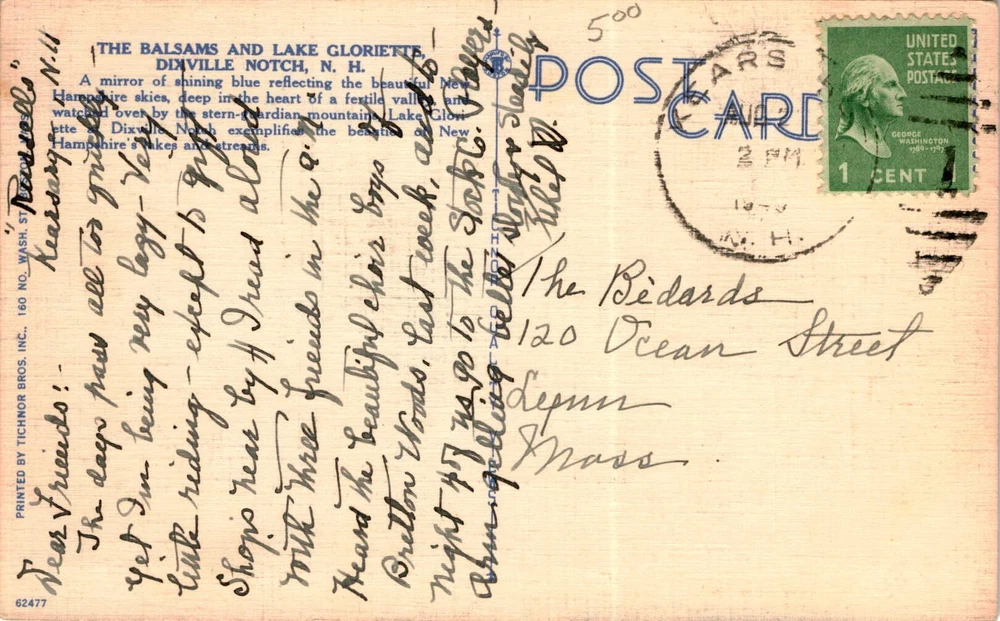 THE BALSAMS AND LAKE GLORIETTE,
DIXVILLE NOTCH, N. H.
A mirror of shining blue reflecting the beautiful New
Hampshire skies, deep in the heart of a fertile valley and
watched over by the stern guardian mountains, Lake Glori-
ette at Dixville Notch exemplifies the beauties of New
Hampshire's lakes and streams.
"Russells"
Kearsarge N.H
Dear Friends:-
The days pass all too quickly
yet I'm being very lazy - Very
little riding - except to gift
Shops near by & I read aloud
with three friends in the a.m.
Heard the beautiful choir boys of
Bretton Woods, last week, and to-
night 4 of us go to the Stock Co. Players
Arm getting better steadily
PRINTED BY TICHNOR BROS. INC., 160 NO. WASH. ST.
62477
POST
CARD
500
2 PM
N. H.
UNITED
STATES
POSTAGE
GEORGE
WASHINGTON
1789-1797
1 CENT 1
The Bedards
120 Ocean Street
Lynn
Mass.